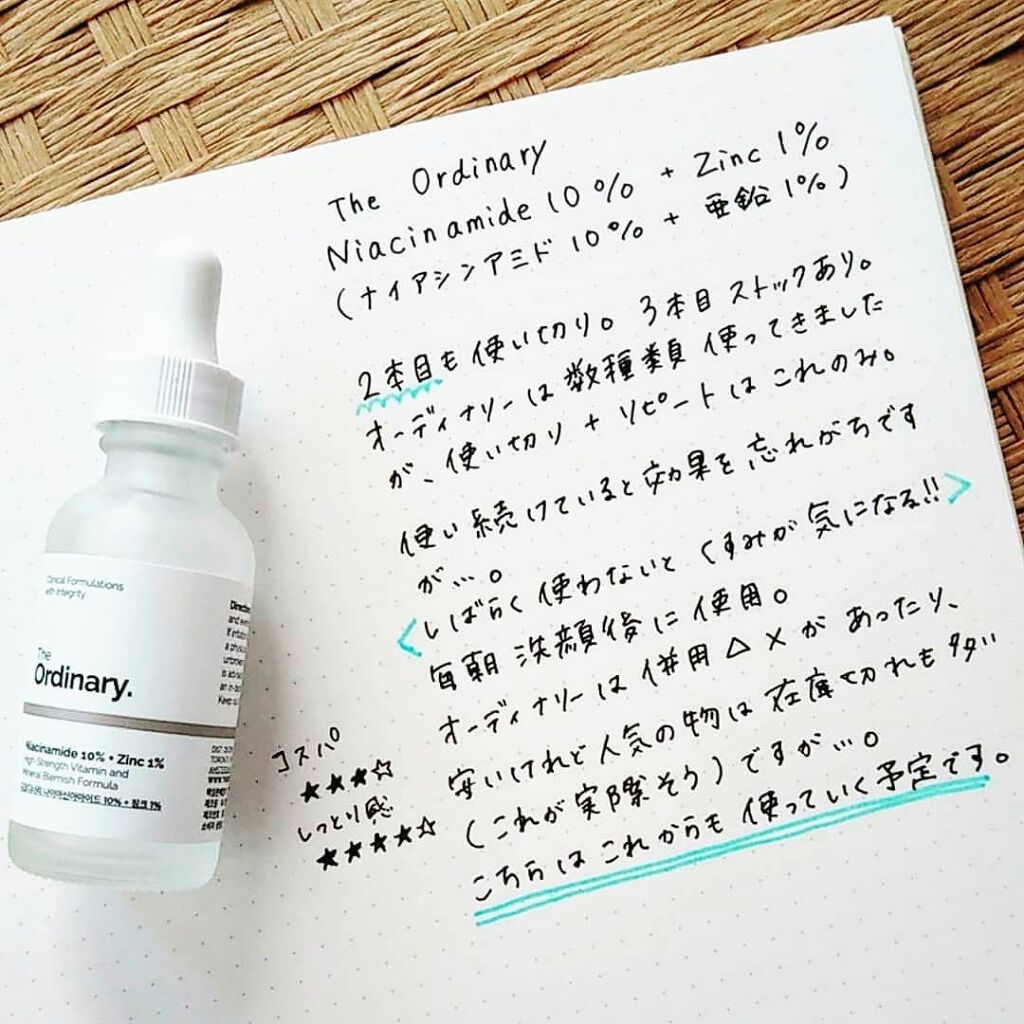 The Ordinary
Niacinamide 10% + Zinc 1%
(ナイアシンアミド 10% + 亜鉛 1%)
2本目も使い切り。3本目ストックあり。
オーディナリーは数種類使ってきました
が、使い切り + リピートはこれのみ。
使い続けていると効果を忘れがちです
が…。
<しばらく使わないとくすみが気になる!!>
毎朝洗顔後に使用。
オーディナリーは併用△×があったり、
安いけれど人気の物は在庫切れも多々
(これが実際そう)ですが…。
こちらはこれからも使っていく予定です。
コスパ
★★★☆
しっとり感
★★★★☆
Clinical Formulations
with Integrity
The
Ordinary.
Niacinamide 10% + Zinc 1%
High-Strength Vitamin and
Mineral Blemish Formula
나이아신아마이드 10% + 징크 1%
Direction
and even
If irritation
a physi